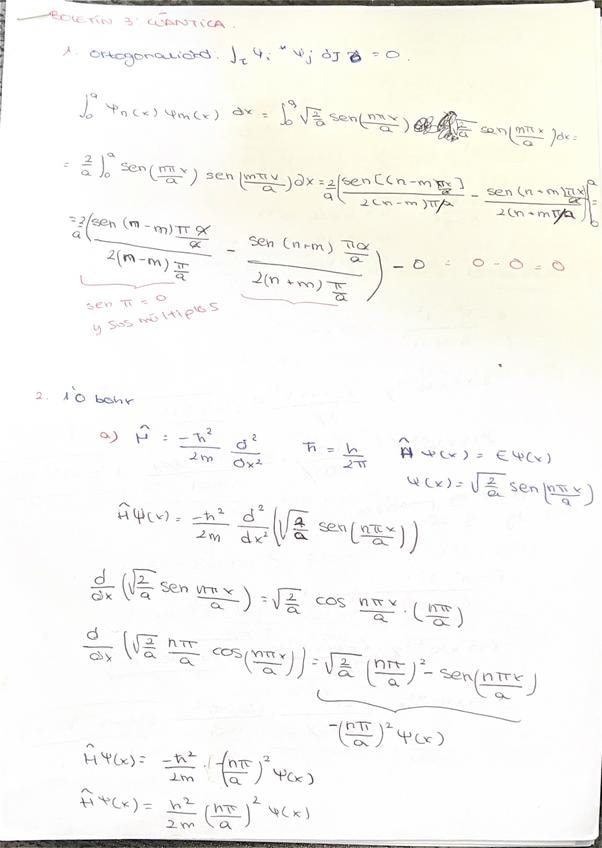 BOLETÍN 3: CUÁNTICA.
1. Ortogonalidad. ∫τ Ψi* Ψj dJ = 0.
∫₀ᵃ Ψn(x) Ψm(x) dx = ∫₀ᵃ √(2/a) sen(nπx/a) √(2/a) sen(mπx/a) dx =
= 2/a ∫₀ᵃ sen(nπx/a) sen(mπx/a) dx = 2/a (sen[(n-m)πx/a] / 2(n-m)π/a - sen(n+m)πx/a / 2(n+m)π/a)|₀ᵃ =
= 2/a (sen(m-m)π a/a / 2(m-m)π/a - sen(n+m) πa/a / 2(n+m)π/a) - 0 = 0 - 0 = 0
sen π = 0
y sus múltiplos
2. 1'0 bohr
a) Ĥ = -ħ²/2m d²/dx² ħ = h/2π Ĥ Ψ(x) = E Ψ(x)
Ψ(x) = √(2/a) sen(nπx/a)
Ĥ Ψ(x) = -ħ²/2m d²/dx² (√(2/a) sen(nπx/a))
d/dx (√(2/a) sen nπx/a) = √(2/a) cos nπx/a · (nπ/a)
d/dx (√(2/a) nπ/a cos(nπx/a)) = √(2/a) (nπ/a)² - sen(nπx/a)
-(nπ/a)² Ψ(x)
Ĥ Ψ(x) = -ħ²/2m · -(nπ/a)² Ψ(x)
Ĥ Ψ(x) = ħ²/2m (nπ/a)² Ψ(x)